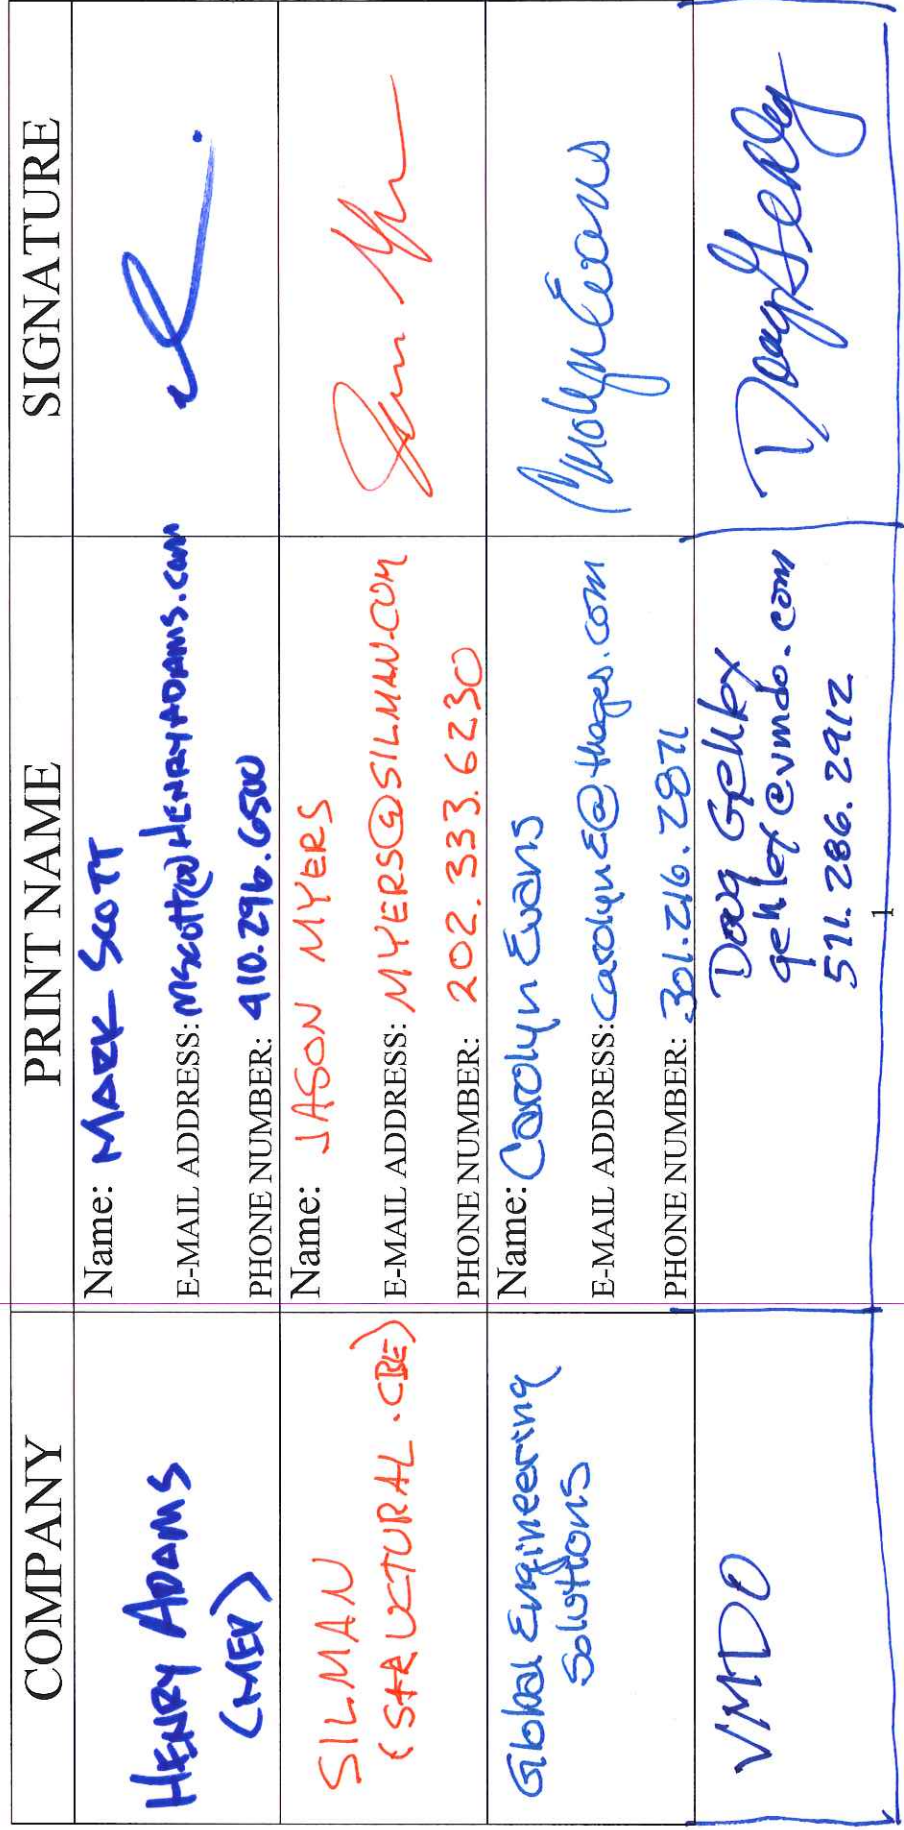 COMPANY PRINT NAME SIGNATURE
HENRY ADAMS
(MEP)
Name: MARK SCOTT
E-MAIL ADDRESS: MSCOTT@HENRYADAMS.COM
PHONE NUMBER: 410.296.6500
SILMAN
(STRUCTURAL. CBE)
Name: JASON MYERS
E-MAIL ADDRESS: MYERS@SILMAN.COM
PHONE NUMBER: 202.333.6230
Global Engineering
Solutions
Name: Carolyn Evans
E-MAIL ADDRESS: CarolynE@thages.com
PHONE NUMBER: 301.216.2871
Carolyn Evans
VMDO
Doug Gehley
gehley@vmdo.com
571.286.2912
Doug Gehley
1